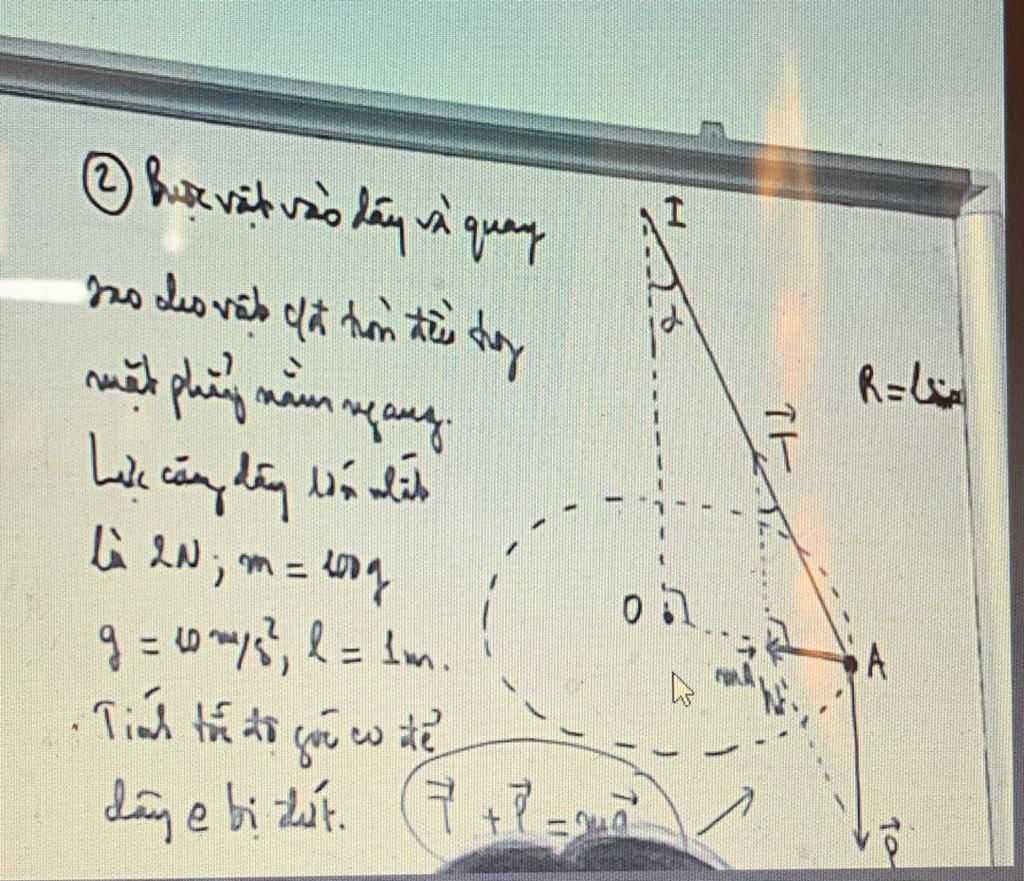 ② Buộc vật vào dây và quay
sao cho vật c/đ tròn đều trong
mặt phẳng nằm ngang.
Lực căng dây lớn nhất
là 2N; m = 100g
g = 10 m/s², l = 1m.
Tính tốc độ góc ω để
dây ko bị đứt.
T⃗ + P⃗ = ma⃗
I
α
T⃗
R = l sinα
O
ma⃗
A
P⃗